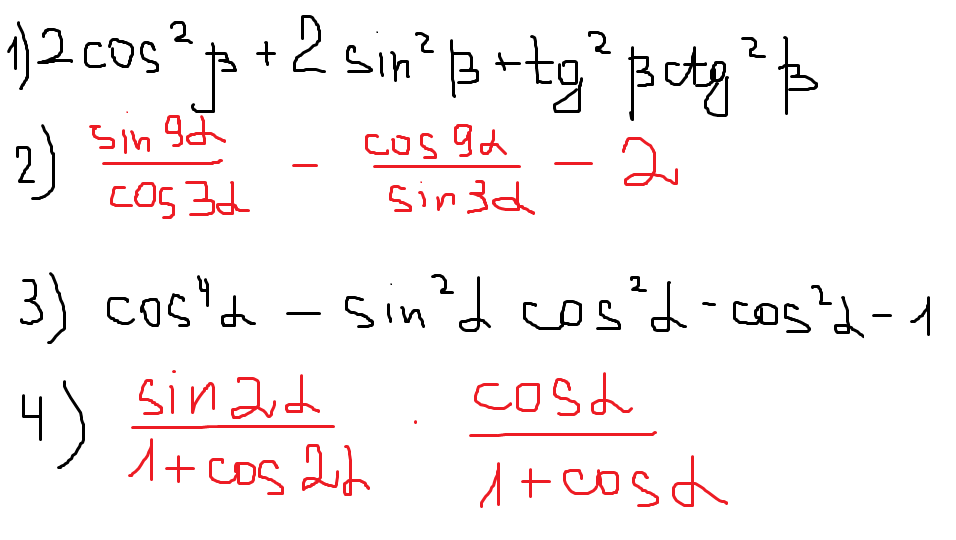 1) 2 cos² β + 2 sin² β + tg² β ctg² β
2) sin 9α / cos 3α − cos 9α / sin 3α − 2
3) cos⁴ α − sin² α cos² α - cos² α − 1
4) sin 2α / 1 + cos 2α · cos α / 1 + cos α